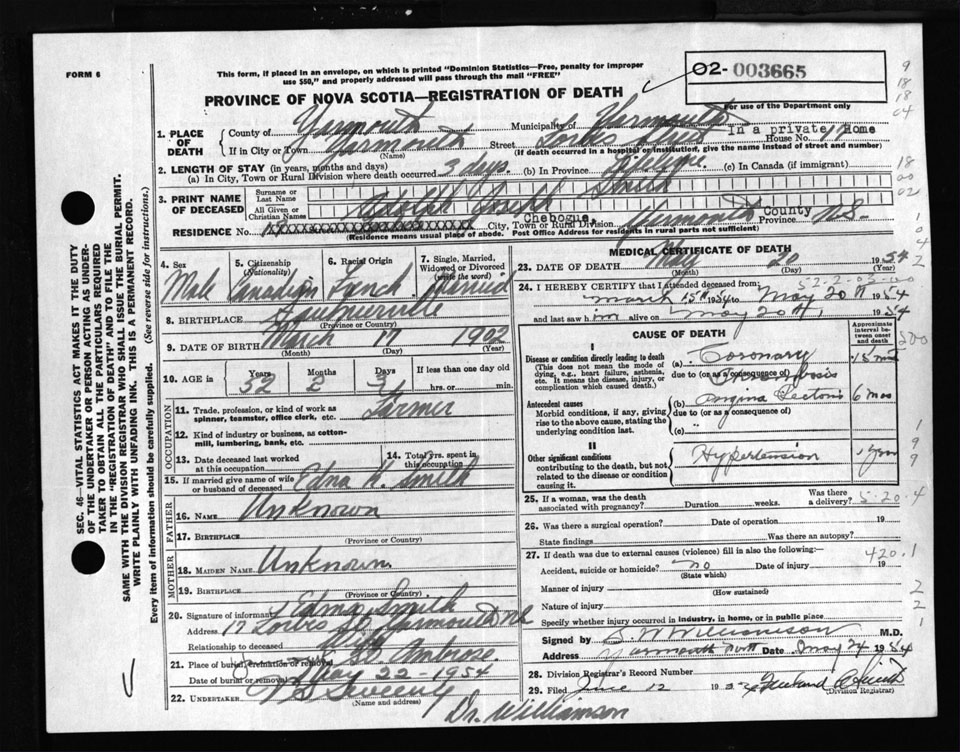 FORM 6
This form, if placed in an envelope, on which is printed "Dominion Statistics—Free, penalty for improper
use $50," and properly addressed will pass through the mail "FREE"
02-003665
For use of the Department only
PROVINCE OF NOVA SCOTIA—REGISTRATION OF DEATH
1. PLACE OF DEATH
County of Yarmouth Municipality of Yarmouth
If in City or Town Yarmouth (Name) Street In a private Home House No. 17
(If death occurred in a hospital or institution, give the name instead of street and number)
2. LENGTH OF STAY (in years, months and days)
(a) In City, Town or Rural Division where death occurred 3 days. (b) In Province Life time. (c) In Canada (if immigrant)
3. PRINT NAME OF DECEASED
Surname or Last Name Smith
All Given or Christian Names Adolph Joseph
RESIDENCE No. City, Town or Rural Division Chebogue, Yarmouth County Province N.S.
(Residence means usual place of abode. Post Office Address for residents in rural parts not sufficient)
4. Sex Male
5. Citizenship (Nationality) Canadian
6. Racial Origin French
7. Single, Married, Widowed or Divorced (write the word) Married
8. BIRTHPLACE Saulnierville (Province or County)
9. DATE OF BIRTH March (Month) 17 (Day) 1902 (Year)
10. AGE in Years 52 Months 2 Days 3 If less than one day hrs. or min.
OCCUPATION
11. Trade, profession, or kind of work as spinner, teamster, office clerk, etc. Farmer
12. Kind of industry or business, as cotton-mill, lumbering, bank, etc.
13. Date deceased last worked at this occupation
14. Total yrs. spent in this occupation
15. If married give name of wife or husband of deceased Edna H. Smith
FATHER
16. NAME Unknown
17. BIRTHPLACE (Province or Country)
MOTHER
18. MAIDEN NAME Unknown
19. BIRTHPLACE (Province or Country)
20. Signature of informant Edna Smith
Address 17 St Yarmouth NS
Relationship to deceased
21. Place of burial, cremation or removal St Ambrose
Date of burial or removal May 22-1954
22. UNDERTAKER Sweeny (Name and address)
Dr. Williamson
MEDICAL CERTIFICATE OF DEATH
23. DATE OF DEATH May (Month) 20 (Day) 1954 (Year)
24. I HEREBY CERTIFY that I attended deceased from:
March 15th 1954 to May 20th 1954
and last saw him alive on May 20th, 1954
CAUSE OF DEATH
Approximate interval between onset and death
I
Disease or condition directly leading to death (a) Coronary Thrombosis 15 min
(This does not mean the mode of dying, e.g., heart failure, asthenia, etc. It means the disease, injury, or complication which caused death.)
due to (or as a consequence of)
Antecedent causes (b) Angina Pectoris 6 mos
Morbid conditions, if any, giving rise to the above cause, stating the underlying condition last.
due to (or as a consequence of)
(c)
II
Other significant conditions contributing to the death, but not related to the disease or condition causing it.
Hypertension 1 year
25. If a woman, was the death associated with pregnancy? Duration weeks. Was there a delivery? 5-20-4
26. Was there a surgical operation? Date of operation 19
State findings Was there an autopsy?
27. If death was due to external causes (violence) fill in also the following:— 420.1
Accident, suicide or homicide? no (State which) Date of injury 19
Manner of injury (How sustained)
Nature of injury
Specify whether injury occurred in industry, in home, or in public place
Signed by S. W. Williamson M.D.
Address Yarmouth North Date May 24 1954
28. Division Registrar's Record Number
29. Filed June 12 (Division Registrar)
SEC. 46—VITAL STATISTICS ACT MAKES IT THE DUTY
OF THE UNDERTAKER OR PERSON ACTING AS UNDER-
TAKER TO OBTAIN ALL THE PARTICULARS REQUIRED
IN THE "REGISTRATION OF DEATH" AND TO FILE THE
SAME WITH THE DIVISION REGISTRAR WHO SHALL ISSUE THE BURIAL PERMIT.
WRITE PLAINLY WITH UNFADING INK. THIS IS A PERMANENT RECORD.
Every item of information should be carefully supplied. (See reverse side for instructions.)